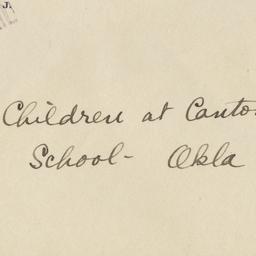 J.
Children at Canto
School - Okla